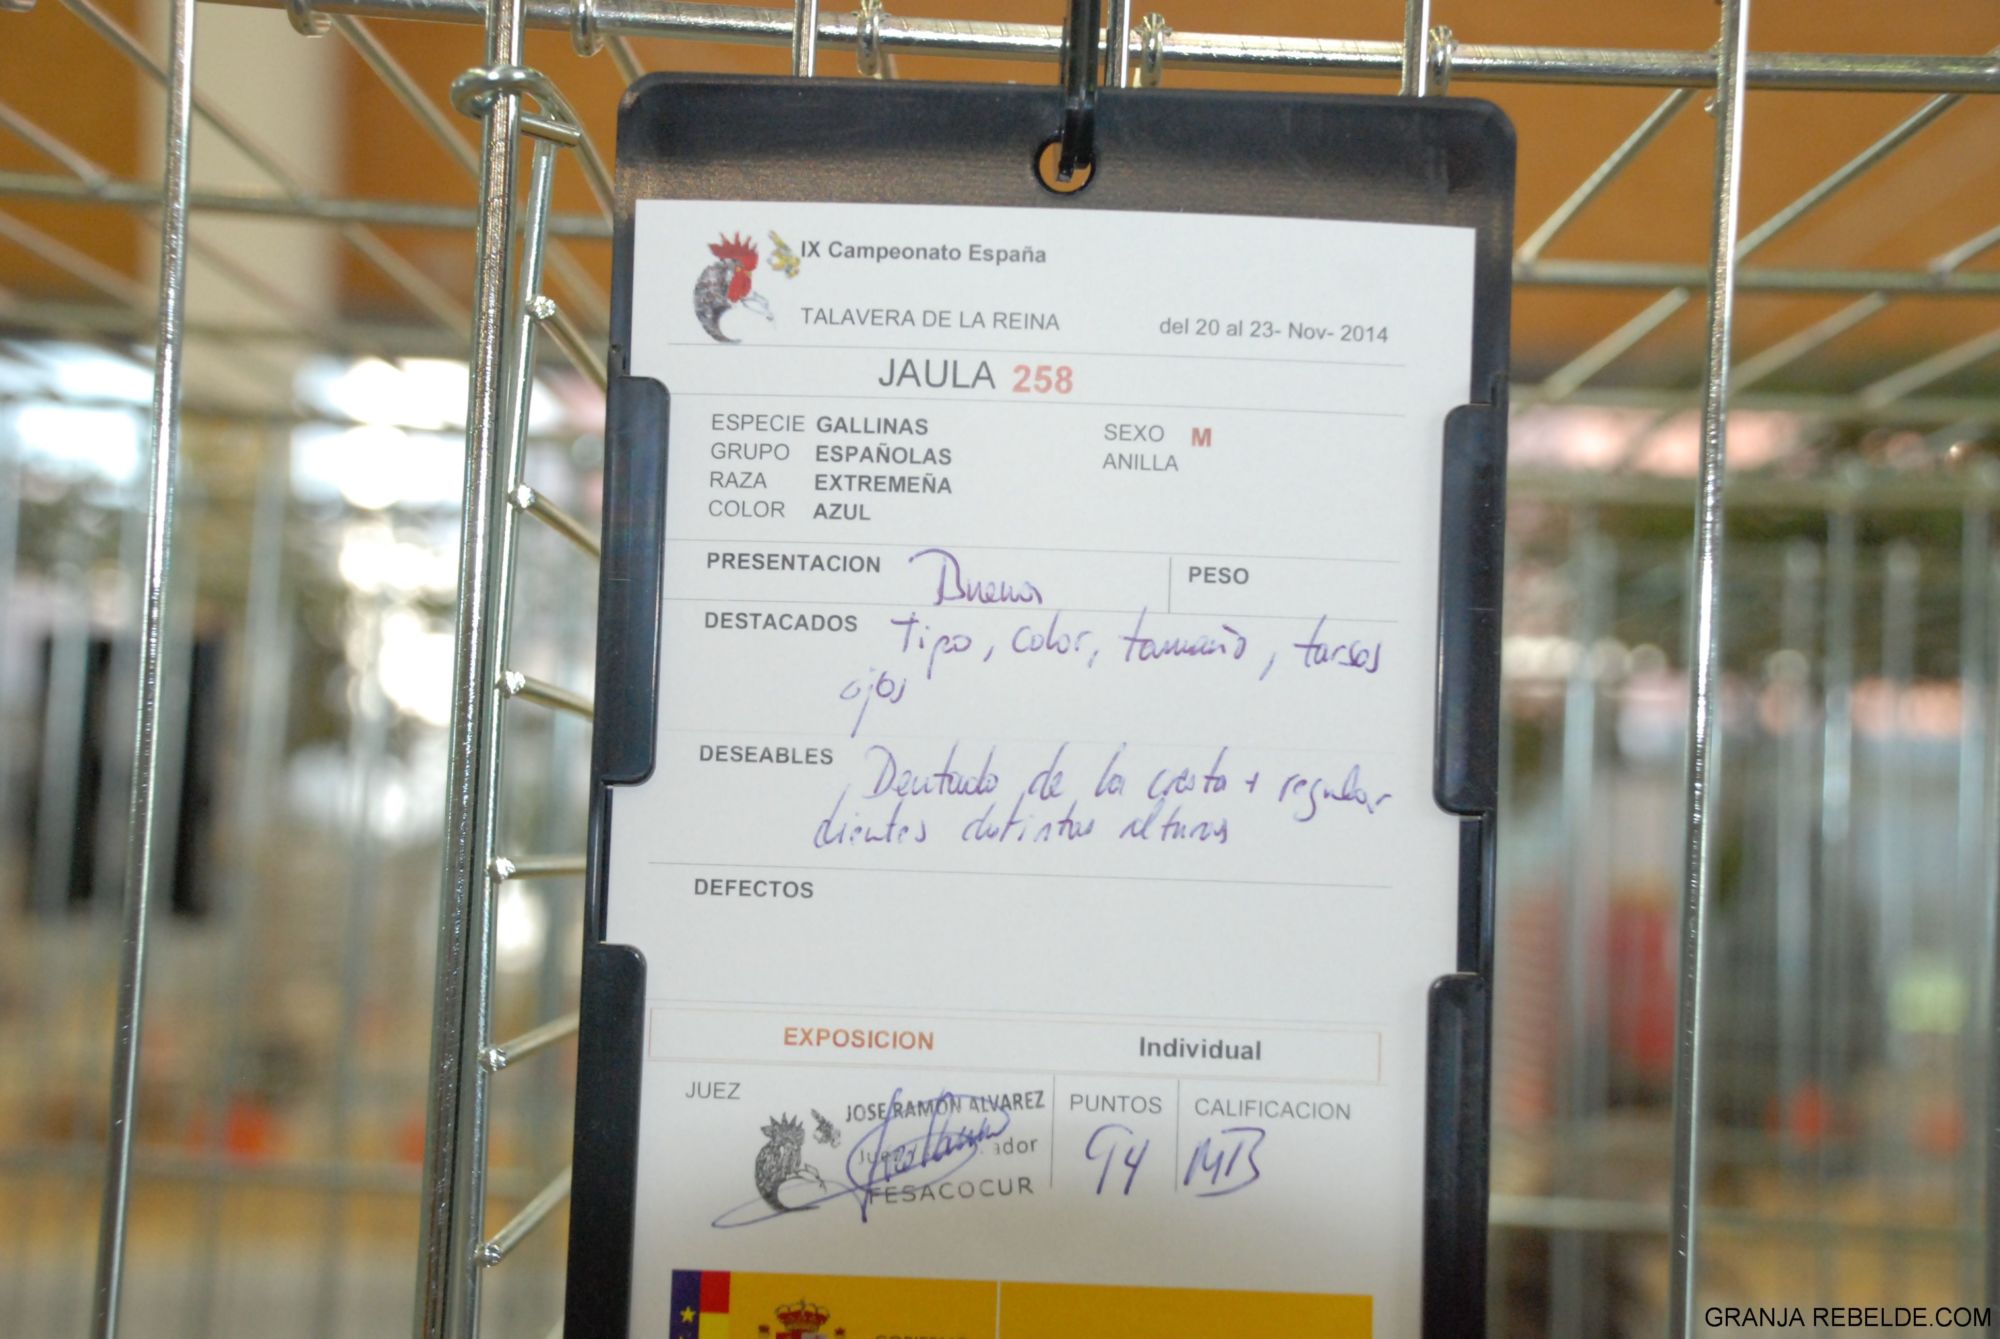 IX Campeonato España
TALAVERA DE LA REINA
del 20 al 23- Nov- 2014
JAULA 258
ESPECIE GALLINAS
SEXO M
GRUPO ESPAÑOLAS
ANILLA
RAZA EXTREMEÑA
COLOR AZUL
PRESENTACION Buena
PESO
DESTACADOS Tipo, color, tamaño, tarsos
ojos
DESEABLES Dentado de la cresta + regular
dientes distintas alturas
DEFECTOS
EXPOSICION Individual
JUEZ
JOSE RAMON ALVAREZ
FESACOCUR
PUNTOS
94
CALIFICACION
MB
GRANJA REBELDE.COM